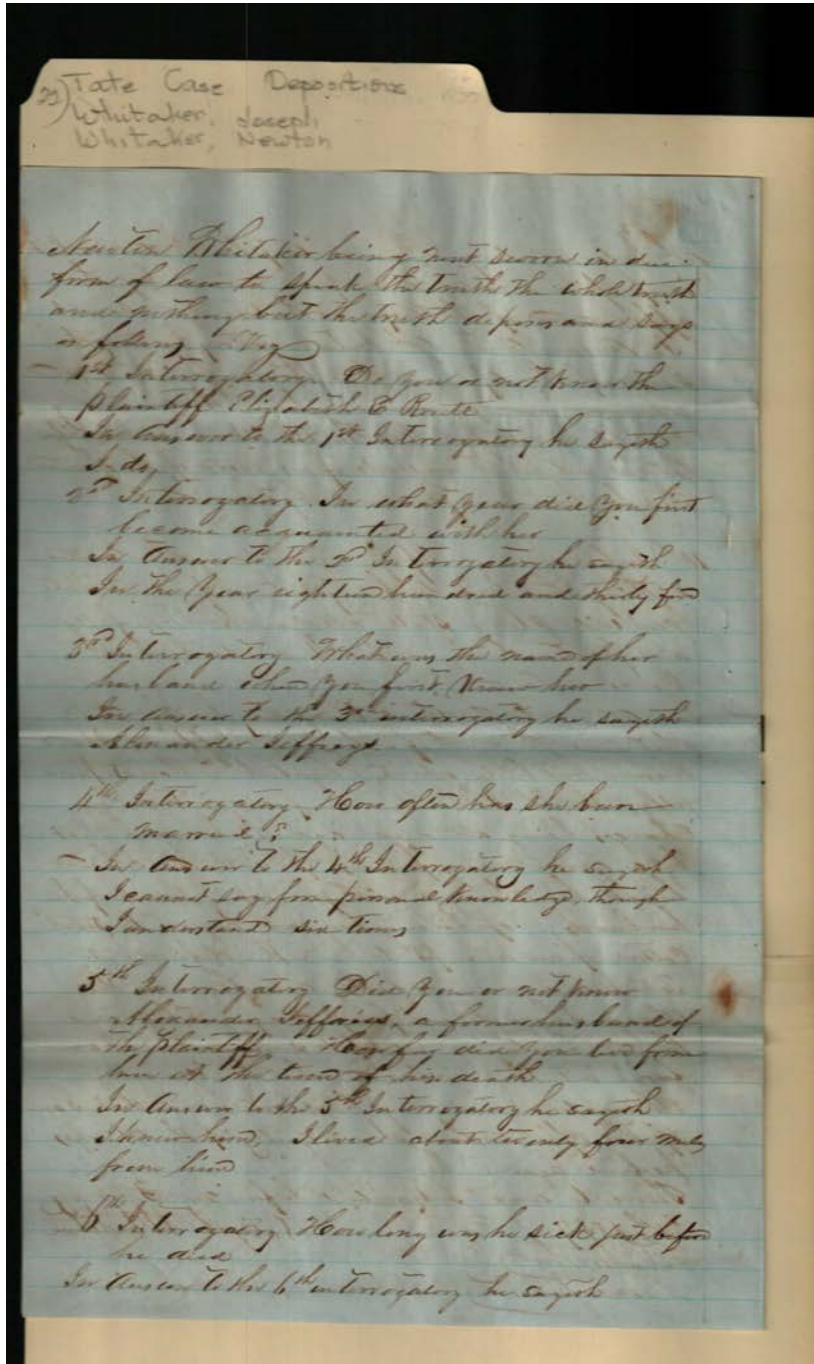 29) Tate Case Depositions
Whitaker, Joseph
Whitaker, Newton
Newton Whitaker being next sworn in due
form of law to speak the truth the whole truth
and nothing but the truth deposes and says
as follows Viz
1st Interrogatory Do you or not know the
plaintiff Elizabeth E Routt
In Answer to the 1st Interrogatory he sayeth
I do,
2nd Interrogatory In what year did you first
become acquainted with her
In Answer to the 2nd Interrogatory he sayeth
In the Year eighteen hundred and thirty
3rd Interrogatory What was the name of her
husband when you first Knew her
In Answer to the 3rd interrogatory he sayeth
Alexander Jeffrays
4th Interrogatory How often has she been
married?
In Answer to the 4th Interrogatory he sayeth
I cannot say from personal Knowledge, though
I understand six times
5th Interrogatory Did You or not know
Alexander Jefferies, a former husband of
the plaintiff. How far did you live from
him at the time of his death
In Answer to the 5th Interrogatory he sayeth
I knew him, I lived about twenty four miles
from him
6th Interrogatory How long was he sick just before
he died
In Answer to the 6th interrogatory he sayeth